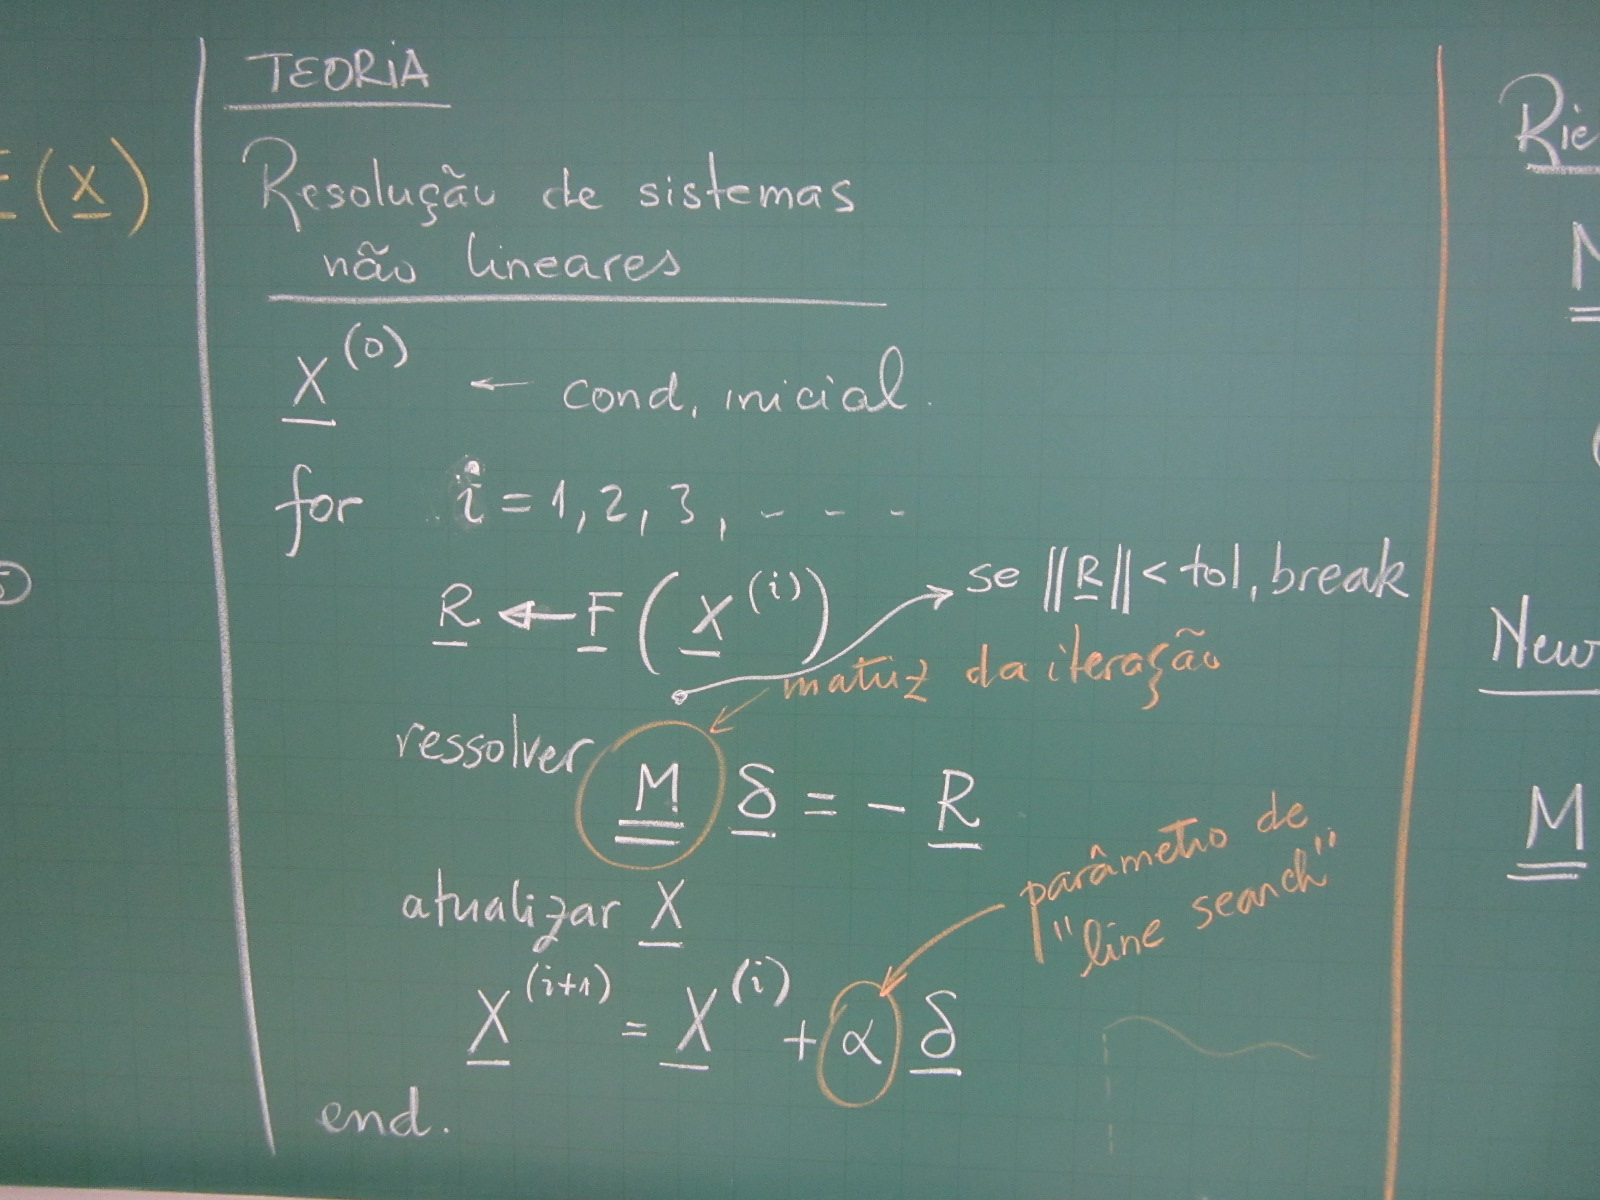 TEORIA
Resolução de sistemas
não lineares
X^(0) ← cond. inicial.
for i = 1, 2, 3, - - -
R ← F(X^(i))
se ||R|| < tol, break
matriz da iteração
ressolver
M δ = - R
atualizar X
parâmetro de
"line search"
X^(i+1) = X^(i) + α δ
end.
(X)
M